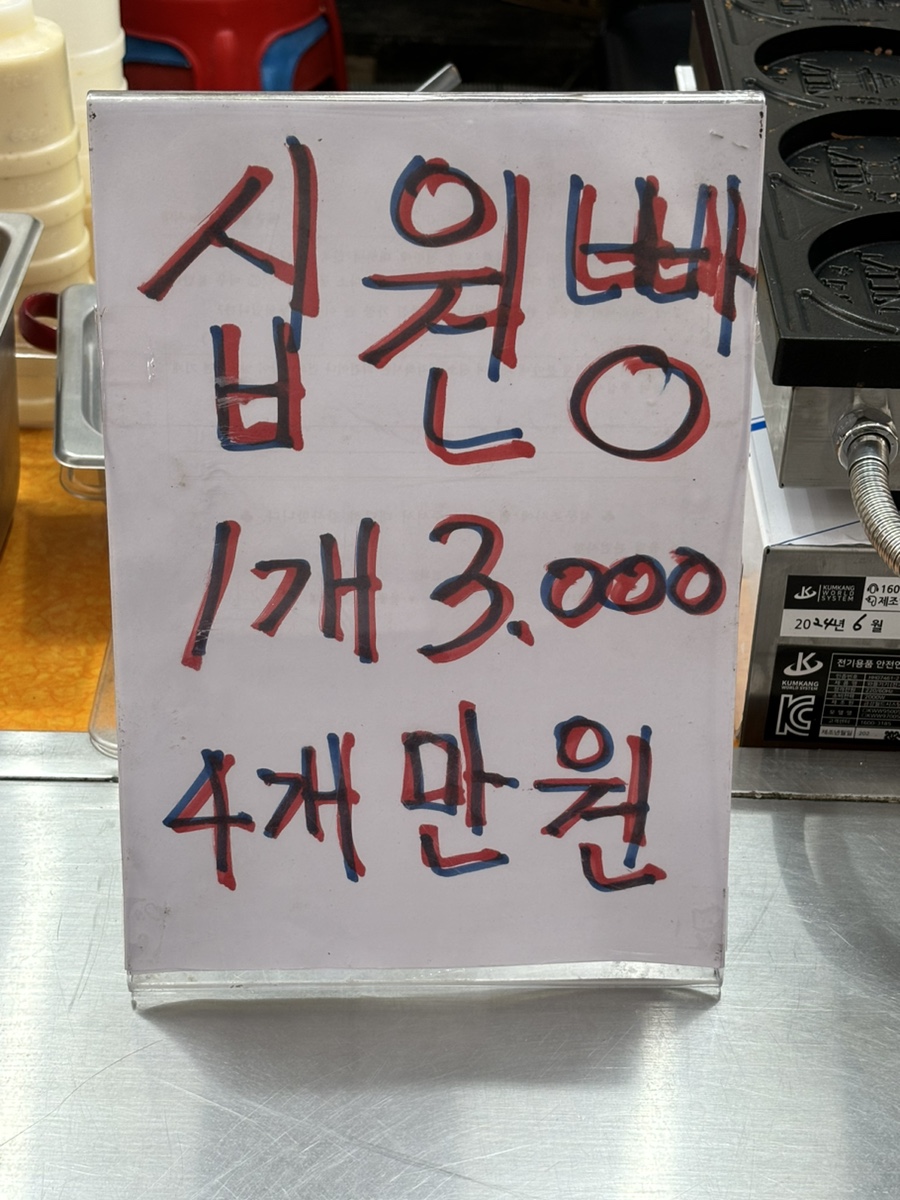 십원빵
1개 3.000
4개 만원
KUMKANG
WORLD
SYSTEM
160
제조
2024년 6월
KUMKANG
WORLD SYSTEM
전기용품 안전인